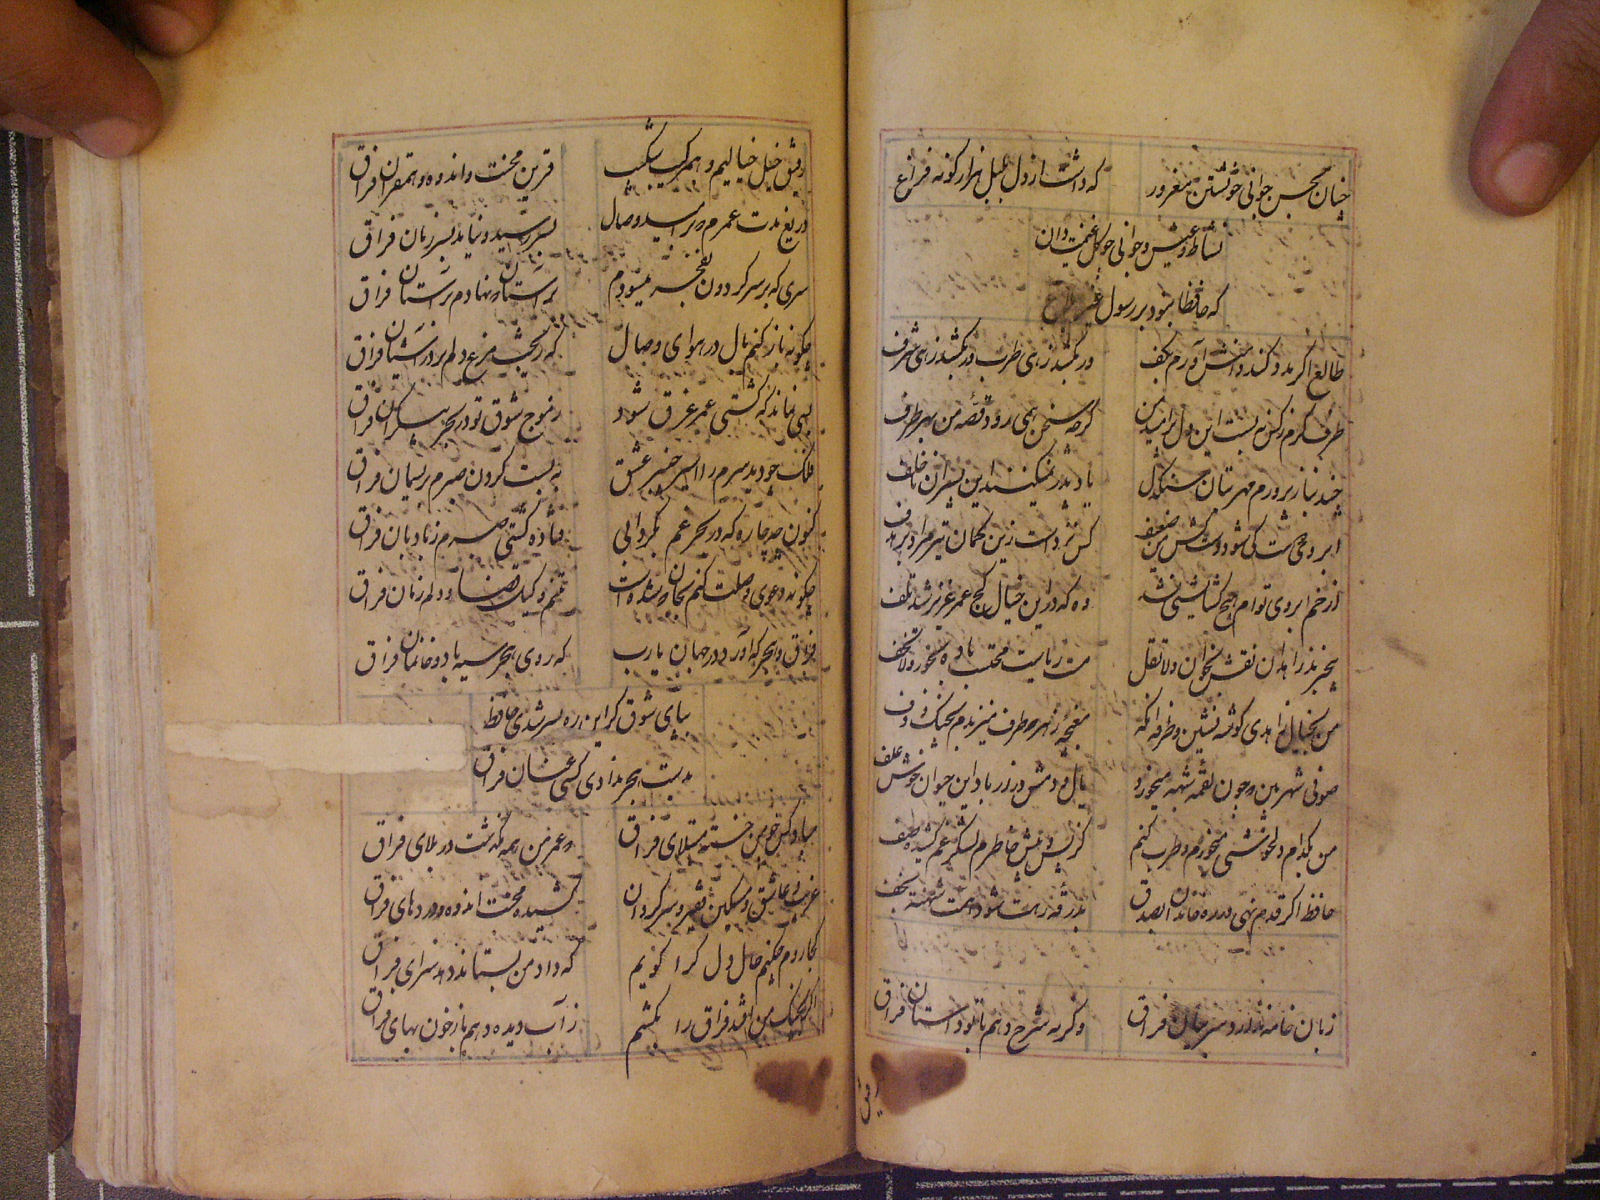 چنان بحسن جوانی خویشتن مغرور که داشت از دل بلبل هزار گونه فراغ
نشاط و عیش و جوانی چو گل غنیمت دان
که حافظا نبود بر رسول غیر بلاغ
طالع اگر مدد کند دامنش آورم بکف ور بکشد زهی طرب ور بکشد زهی شرف
طرف کرم ز کس نبست این دل پر امید من گرچه سخن همی برد قصه من بهر طرف
چند بناز پرورم مهر بتان سنگدل یاد پدر نمیکنند این پسران ناخلف
ابروی دوست کی شود دستکش من ضعیف کس نزدست زین کمان تیر مراد بر هدف
از خم ابروی توام هیچ گشایشی نشد وه که درین خیال کج عمر عزیز شد تلف
بیخبرند زاهدان نقش بخوان و لا تقل مست ریاست محتسب باده بخور و لا تخف
من بخیال زاهدی گوشه نشین و طرفه آنکه مغبچه ز هر طرف میزندم بچنگ و دف
صوفی شهر بین که چون لقمه شبهه میخورد پال و دمش دراز باد این حیوان خوش علف
من بکدام دلخوشی می خورم و طرب کنم کز پس و پیش خاطرم لشکر غم کشیده صف
حافظ اگر قدم نهی در ره خاندان بصدق بدرقه رهت شود همت شحنه نجف
زبان خامه ندارد سر بیان فراق وگرنه شرح دهم با تو داستان فراق
رفیق
رفیق خیل خیالیم و همرکیب شکیب قرین محنت و اندوه و همقران فراق
دریغ مدت عمرم که بر امید وصال بسر رسید و نیامد بسر زمان فراق
سری که بر سر گردون بفخر میسودم بر آستان که نهادم بر آستان فراق
چگونه باز کنم بال در هوای وصال که ریخت مرغ دلم پر در آشیان فراق
بسی نماند که کشتی عمر غرق شود ز موج شوق تو در بحر بیکران فراق
فلک چو دید سرم را اسیر چنبر عشق به بست گردن صبرم بریسمان فراق
کنون چه چاره که در بحر غم بگردابی فتاده کشتی صبرم ز بادبان فراق
چگونه دعوی وصلت کنم بجان که شده است تنم وکیل قضا و دلم ضمان فراق
فراق و هجر که آورد در جهان یارب که روی هجر سیه باد و خانمان فراق
بپای شوق گر این ره بسر شدی حافظ
بدست هجر ندادی کسی عنان فراق
مباد کس چو من خسته مبتلای فراق که عمر من همه بگذشت در بلای فراق
غریب و عاشق و مسکین فقیر و سرگردان کشیده محنت اندوه و دردهای فراق
کجا روم چکنم حال دل کرا گویم که داد من بستاند دهد سزای فراق
اگر بچنگ من افتد فراق را بکشم ز آب دیده دهم باز خون بهای فراق